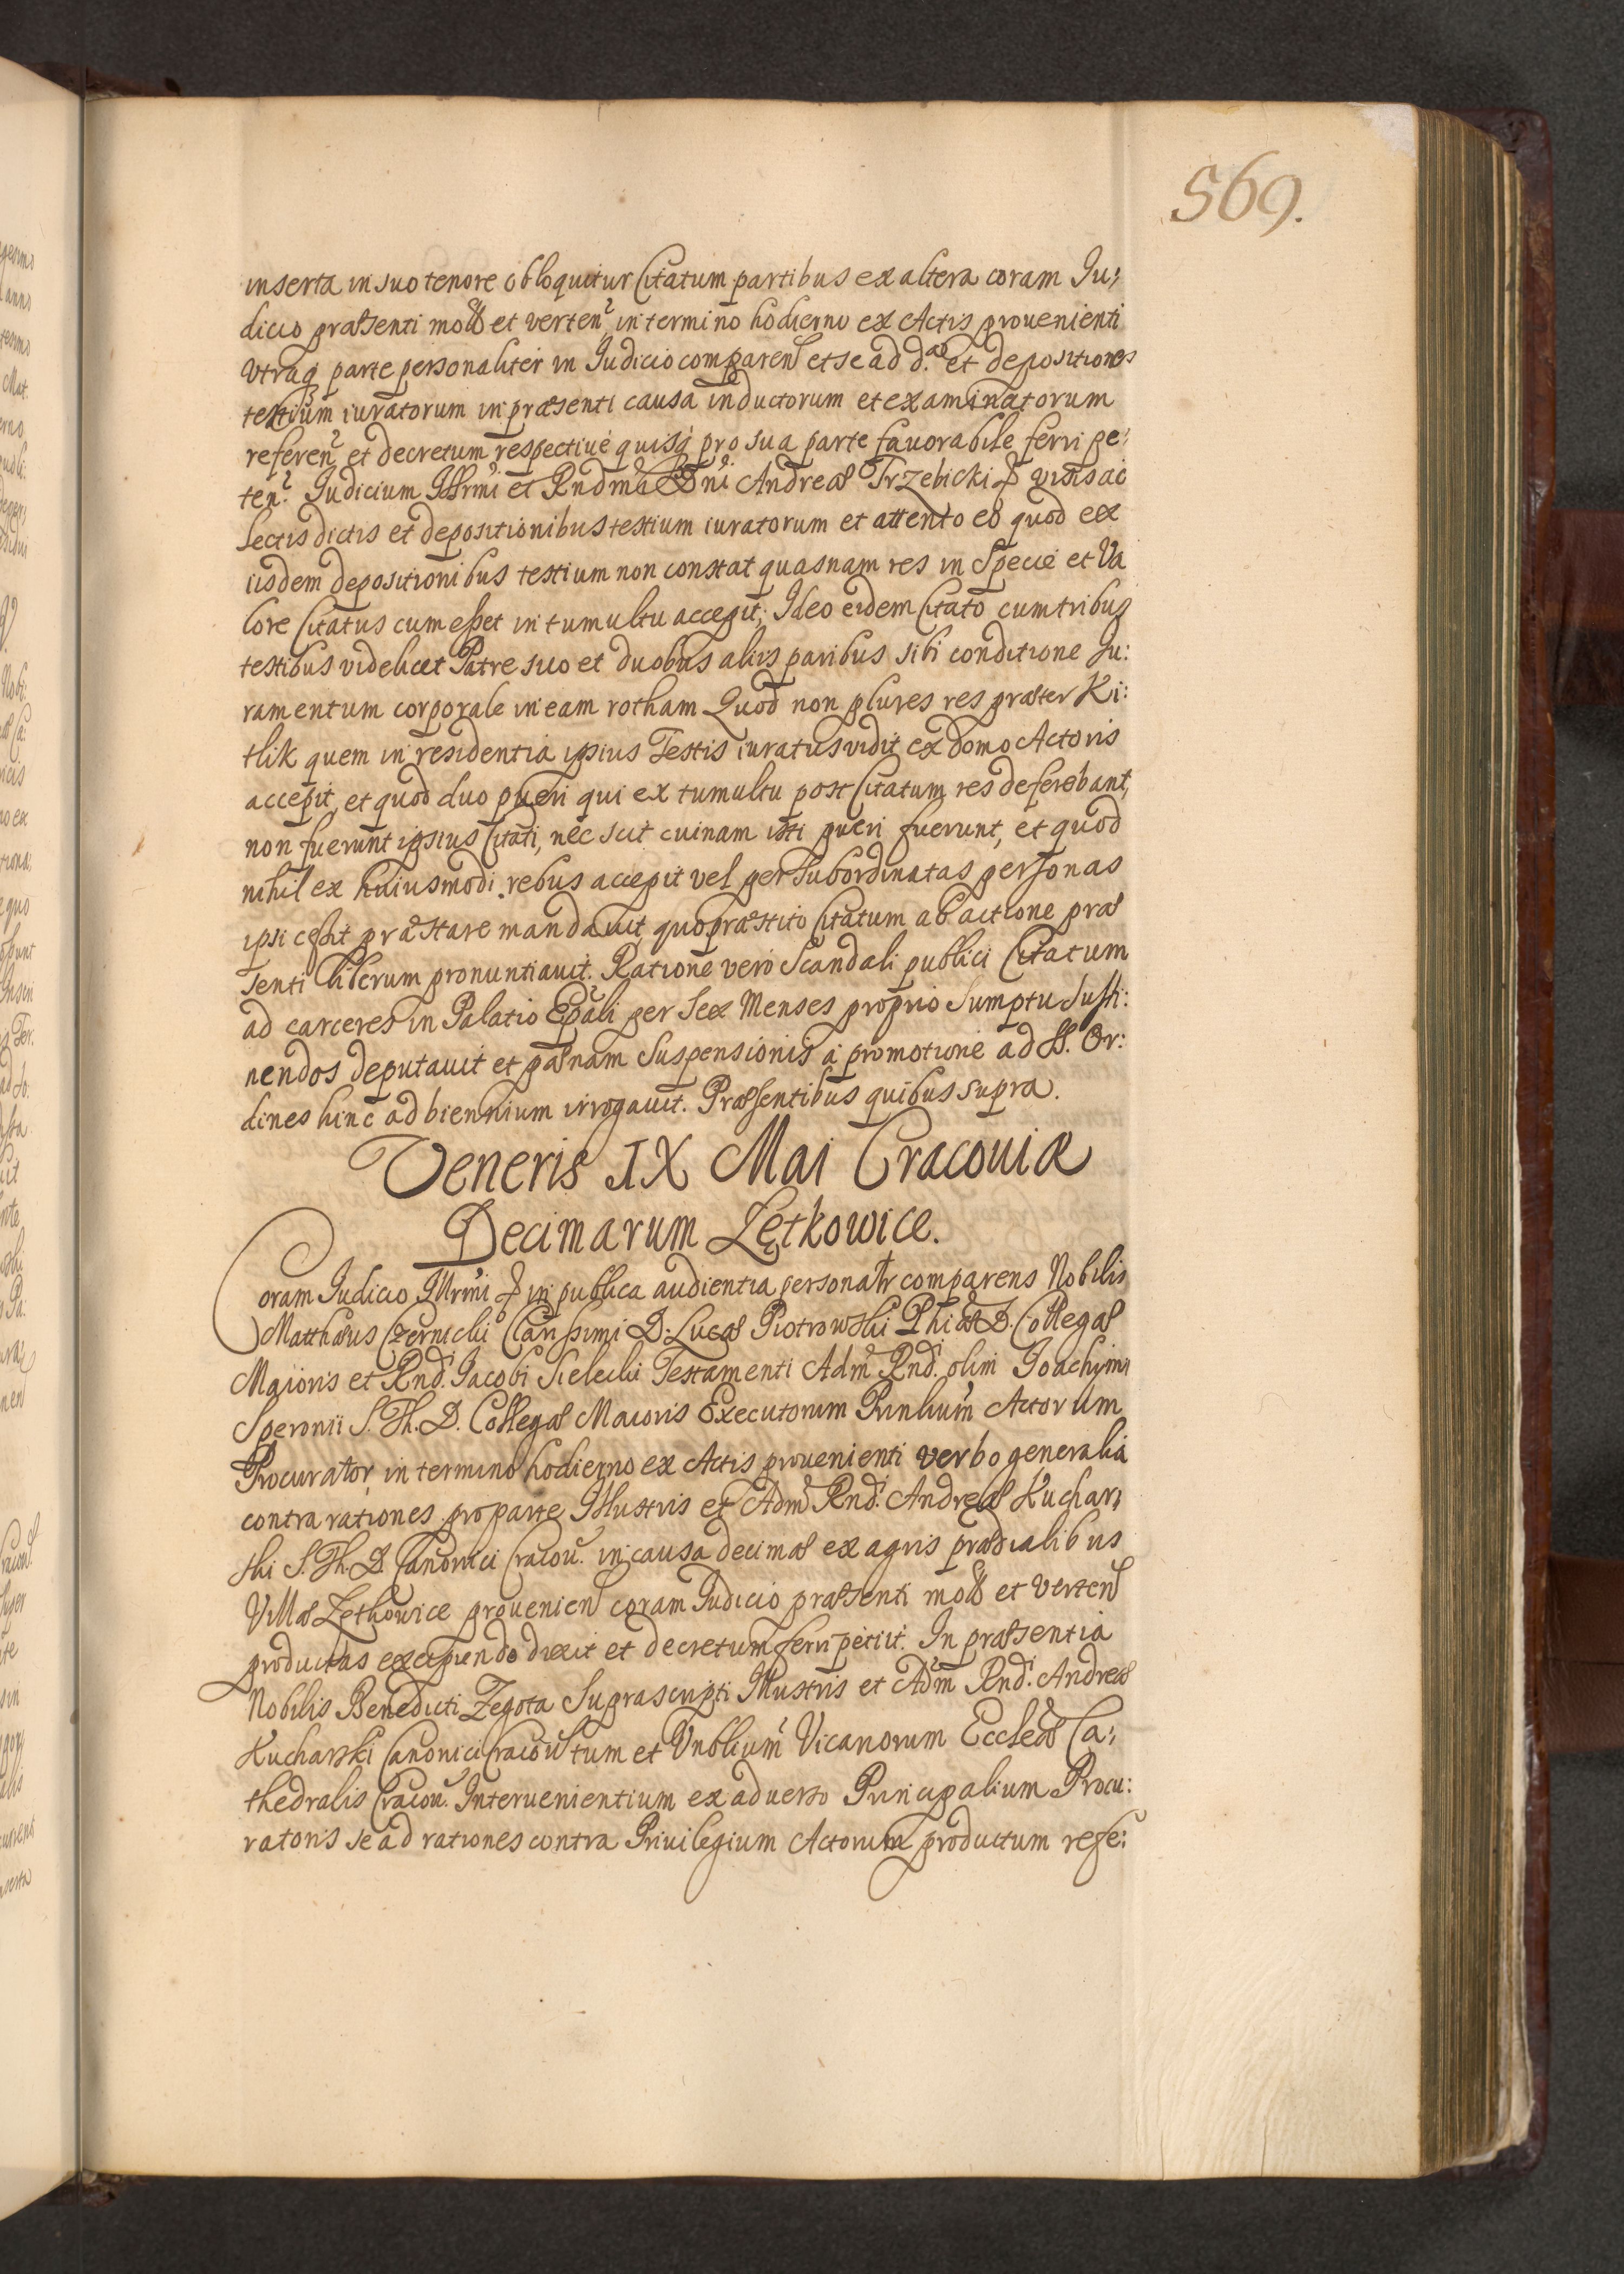 569.
inserta in suo tenore obloquitur Citatum partibus ex altera coram Ju:
dicio præsenti mott et verten. in termino hodierno ex Actis prouenienti
vtraq parte personaliter in Judicio comparen et se ad d.as et depositiones
testium iuratorum in præsenti causa inductorum et examinatorum
referen. et decretum respectiue quisq pro sua parte fauorabile ferri pe:
ten. Judicium Illrmi et Rndmi Dni Andreæ Trzebicki & visis ac
lectis dictis et depositionibus testium iuratorum et attento eo quod ex
iisdem depositionibus testium non constat quasnam res in Specie et Va
lore Citatus cum esset in tumultu accepit; Ideo eidem Citato cum tribus
testibus videlicet Patre suo et duobus aliis paribus sibi conditione Ju:
ramentum corporale in eam rotham Quod non plures res præter Ki:
tlik quem in residentia ipsius Testis iuratus vidit ex domo Actoris
accepit, et quod duo pueri qui ex tumultu post Citatum res deferebant,
non fuerunt ipsius Citati, nec scit cuinam isti pueri fuerunt, et quod
nihil ex huiusmodi rebus accepit vel per Subordinatas personas
ipsi cessit præstare mandauit, quo præstito Citatum ab actione præ
senti liberum pronuntiauit. Ratione vero Scandali publici Citatum
ad carceres in Palatio Epali per Sex Menses proprio Sumptu Susti:
nendos deputauit et pænam Suspensionis a promotione ad SS. Or:
dines hinc ad biennium irrogauit. Præsentibus quibus supra.
Veneris IX Mai Cracouiæ
Decimarum Zętkowice.
Coram Judicio Illrmi & in publica audientia personatr comparens Nobilis
Matthæus Czernicki Clarissimi D. Lucæ Piotrowski Phiæ D. Collegæ
Maioris et Rndi. Jacobi Sielecki Testamenti Adm Rndi. olim Joachimi
Speronii S. Th. D. Collegæ Maioris Executorum Prinlium Actorum
Procurator, in termino hodierno ex Actis prouenienti verbo generalia
contra rationes pro parte Illustris et Adm Rndi. Andreæ Kuchar:
ski S. Th. D. Canonici Cracou. in causa decimæ ex agris prædialibus
Villæ Zętkowice prouenien coram Judicio præsenti mott et verten
productas excipiendo dixit et decretum ferri petiit. In præsentia
Nobilis Benedicti Zegota Suprascripti Illustris et Adm Rndi. Andreæ
Kucharski Canonici Cracou tum et Vnblium Vicariorum Ecclæ Ca:
thedralis Cracou. Interuenientium ex aduerso Principalium Procu:
ratoris se ad rationes contra Priuilegium Actorum productum refe: